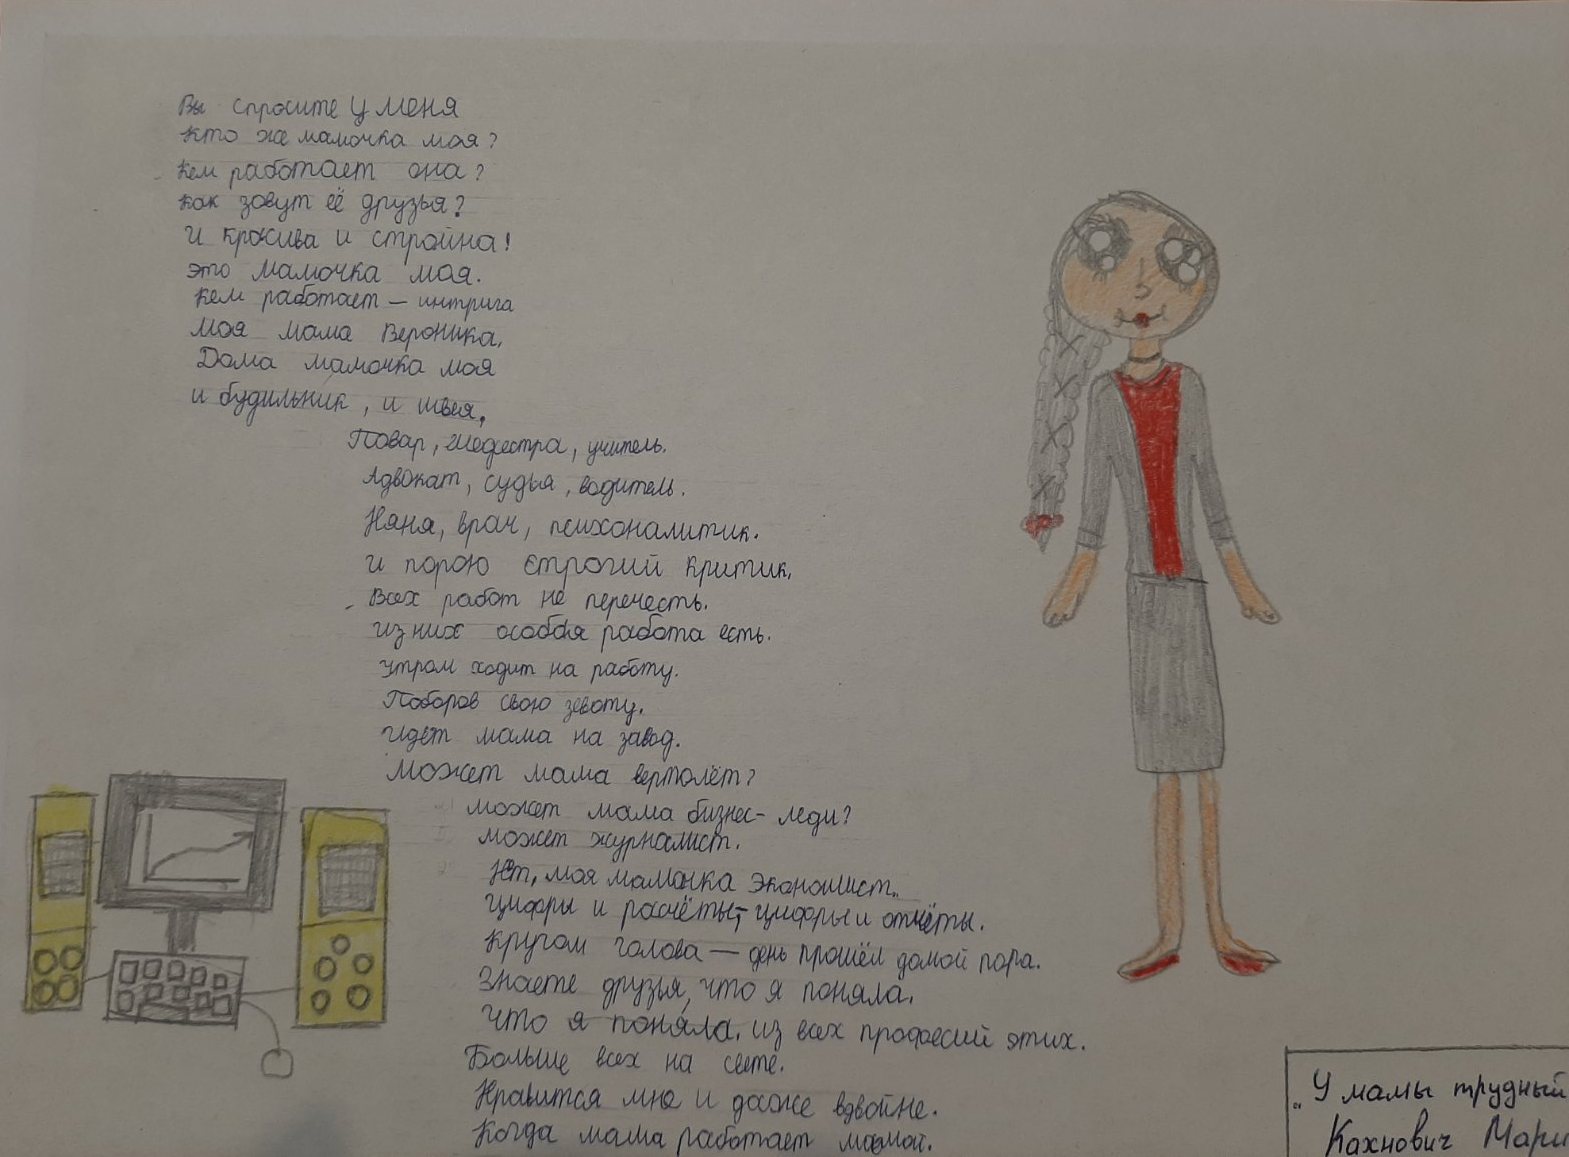 Вы спросите у меня
Кто же мамочка моя?
Кем работает она?
Как зовут её друзья?
И красива и стройна!
Это мамочка моя.
Кем работает – интрига
Моя мама Вероника.
Дома мамочка моя
и будильник, и швея,
Повар, медсестра, учитель.
Адвокат, судья, водитель.
Няня, врач, психоналитик.
И порою строгий критик,
Всех работ не перечесть.
Из них особая работа есть.
Утром ходит на работу.
Поборов свою зевоту.
Идёт мама на завод.
Может мама вертолёт?
Может мама бизнес-леди?
Может журналист.
Нет, моя мамочка экономист.
Цифры и расчёты, цифры и отчёты.
Кругом голова — день прошёл домой пора.
Знаете друзья, что я поняла.
Что я поняла. из всех професий этих.
Больше всех на свете.
Нравится мне и даже вдвойне.
Когда мама работает мамой.
„У мамы трудный
Кахнович Мари